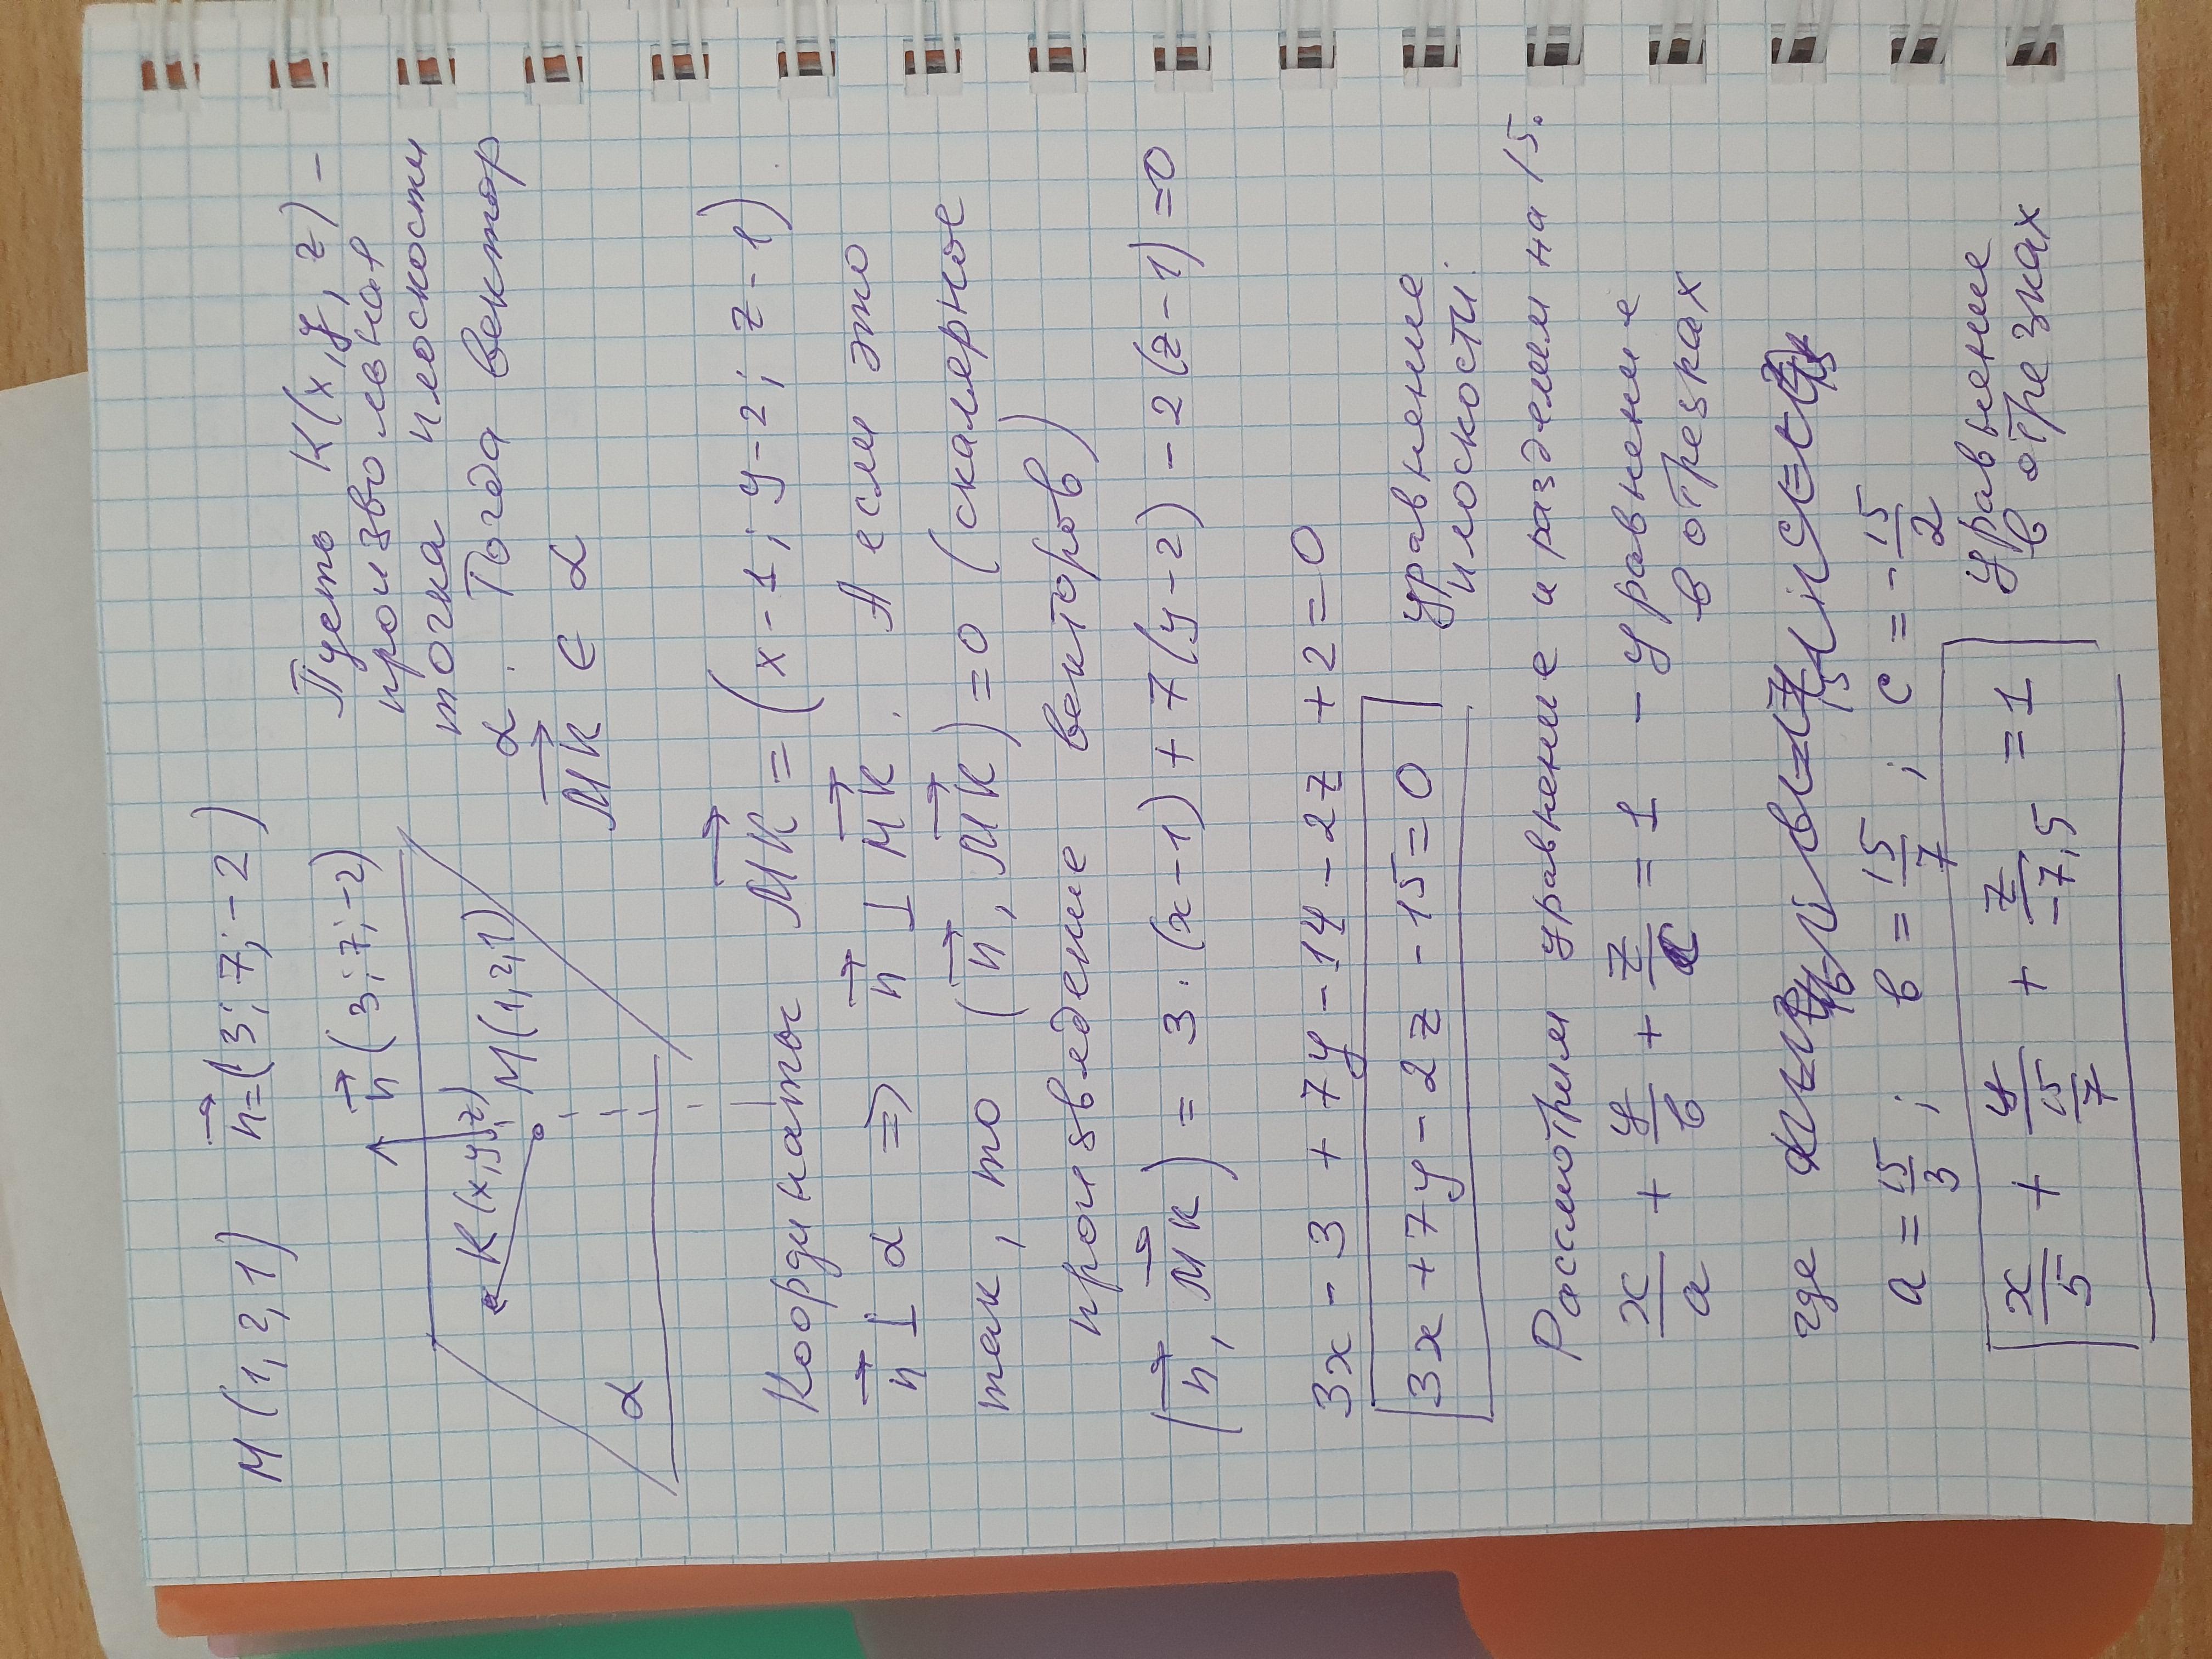 M(1,2,1) n⃗=(3;7;-2)
n⃗(3;7;-2)
K(x,y,z)
M(1,2,1)
α
Пусть K(x,y,z) –
произвольная
точка плоскости
α. Тогда вектор
M͞K⃗ ∈ α
Координаты MK⃗ = (x-1; y-2; z-1)
n⃗ ⊥ α ⇒ n⃗ ⊥ MK⃗. А если это
так, то (n⃗, MK⃗)=0 (скалярное
произведение векторов)
(n⃗, MK⃗) = 3·(x-1)+7(y-2)-2(z-1)=0
3x-3+7y-14-2z+2=0
3x+7y-2z-15=0 уравнение
плоскости.
Рассмотрим уравнение и разделим на 15.
x/a + y/b + z/c = 1 - уравнение
в отрезках
где
a=15/3; b=15/7; c=-15/2
x/5 + y/(15/7) + z/-7,5 = 1 уравнение
в отрезках